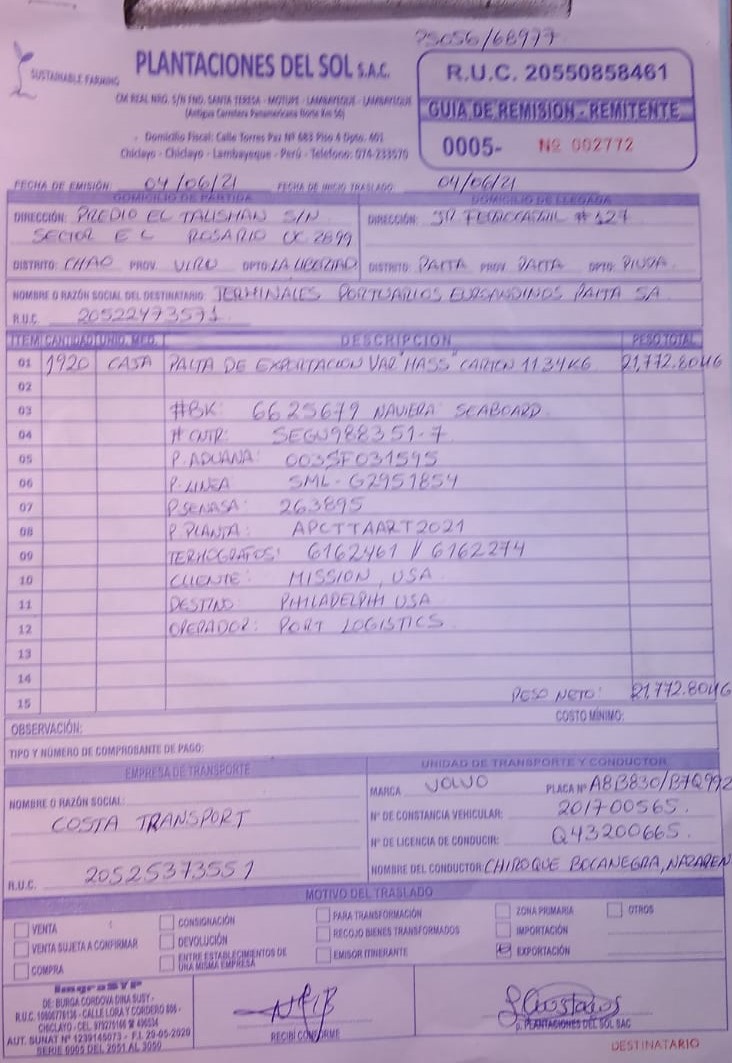 75056/68977
SUSTAINABLE FARMING
PLANTACIONES DEL SOL S.A.C.
CAR. REAL NRO. S/N FND. SANTA TERESA - MOTUPE - LAMBAYEQUE - LAMBAYEQUE
(Antigua Carretera Panamericana Norte Km 56)
Domicilio Fiscal: Calle Torres Paz Nº 683 Piso 4 Dpto. 401
Chiclayo - Chiclayo - Lambayeque - Perú - Teléfono: 074-233570
R.U.C. 20550858461
GUIA DE REMISION - REMITENTE
0005- Nº 002772
FECHA DE EMISIÓN 04/06/21 FECHA DE INICIO TRASLADO 04/06/21
DOMICILIO DE PARTIDA DOMICILIO DE LLEGADA
DIRECCIÓN: PREDIO EL TALISMAN S/N DIRECCIÓN: JR FERROCARRIL #127
SECTOR EL ROSARIO UC 2899
DISTRITO: CHAO PROV. VIRU DPTO. LA LIBERTAD DISTRITO: PAITA PROV. PAITA DPTO. PIURA.
NOMBRE O RAZÓN SOCIAL DEL DESTINATARIO: TERMINALES PORTUARIOS EUROANDINOS PAITA SA
R.U.C. 20522473571
ITEM CANTIDAD UNID. MED. DESCRIPCION PESO TOTAL
01 1920 CAJA PALTA DE EXPORTACION VAR "HASS" CARTON 11.34KG 21,772.80KG
02
03 #BK: 6625679 NAVIERA SEABOARD
04 # CNTR: SEGU988351-7
05 P. ADUANA: 003SF031595
06 P. LINEA SML-G2951854
07 P SENASA: 263895
08 P PLANTA: APCTTAART2021
09 TERMOGRAFOS: 6162461 // 6162274
10 CLIENTE: MISSION, USA
11 DESTINO PHILADELPHI USA
12 OPERADOR: PORT LOGISTICS
13
14
15 PESO NETO: 21,772.80KG
OBSERVACIÓN: COSTO MÍNIMO:
TIPO Y NÚMERO DE COMPROBANTE DE PAGO:
EMPRESA DE TRANSPORTE UNIDAD DE TRANSPORTE Y CONDUCTOR
MARCA VOLVO PLACA Nº A8B830/B7Q992
NOMBRE O RAZÓN SOCIAL: Nº DE CONSTANCIA VEHICULAR: 201700565.
COSTA TRANSPORT
Nº DE LICENCIA DE CONDUCIR: Q43200665.
R.U.C. 20525373551 NOMBRE DEL CONDUCTOR CHIROQUE BOCANEGRA, NAZAREN
MOTIVO DEL TRASLADO
VENTA CONSIGNACIÓN PARA TRANSFORMACIÓN ZONA PRIMARIA OTROS
VENTA SUJETA A CONFIRMAR DEVOLUCIÓN RECOJO BIENES TRANSFORMADOS IMPORTACIÓN
COMPRA ENTRE ESTABLECIMIENTOS DE UNA MISMA EMPRESA EMISOR ITINERANTE EXPORTACIÓN
ImgraSYP
DE: BURGA CORDOVA DINA SUSY -
CALLE LORA Y CORDERO
AUT. SUNAT Nº 1239145073 - F.I. 29-05-2020
SERIE 0005 DEL 2051 AL 3050
RECIBÍ CONFORME
p. PLANTACIONES DEL SOL SAC
DESTINATARIO